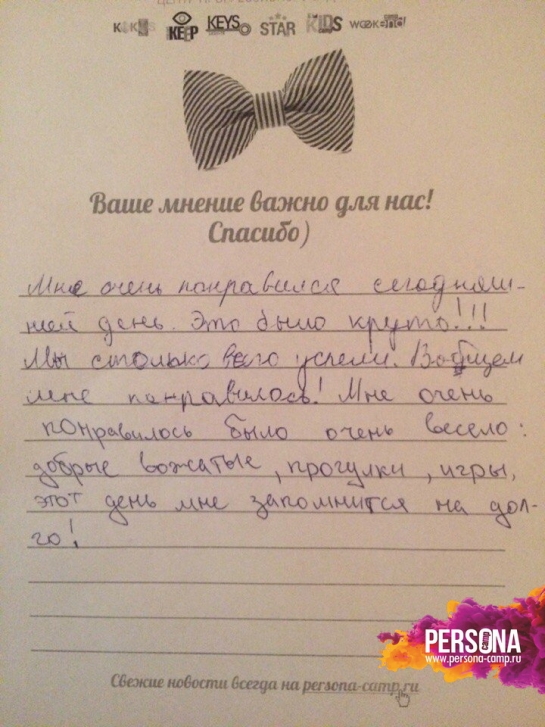 KEEP
KEYS
STAR
KIDS
Ваше мнение важно для нас!
Спасибо)
Мне очень понравился сегодняш-
ний день. Это было круто!!!
Мы столько всего успели. Вобщем
мне панравилось! Мне очень
понравилось было очень весело:
добрые вожатые, прогулки, игры,
этот день мне запомнится на дол-
го!
PERSONA
www.persona-camp.ru
Свежие новости всегда на persona-camp.ru